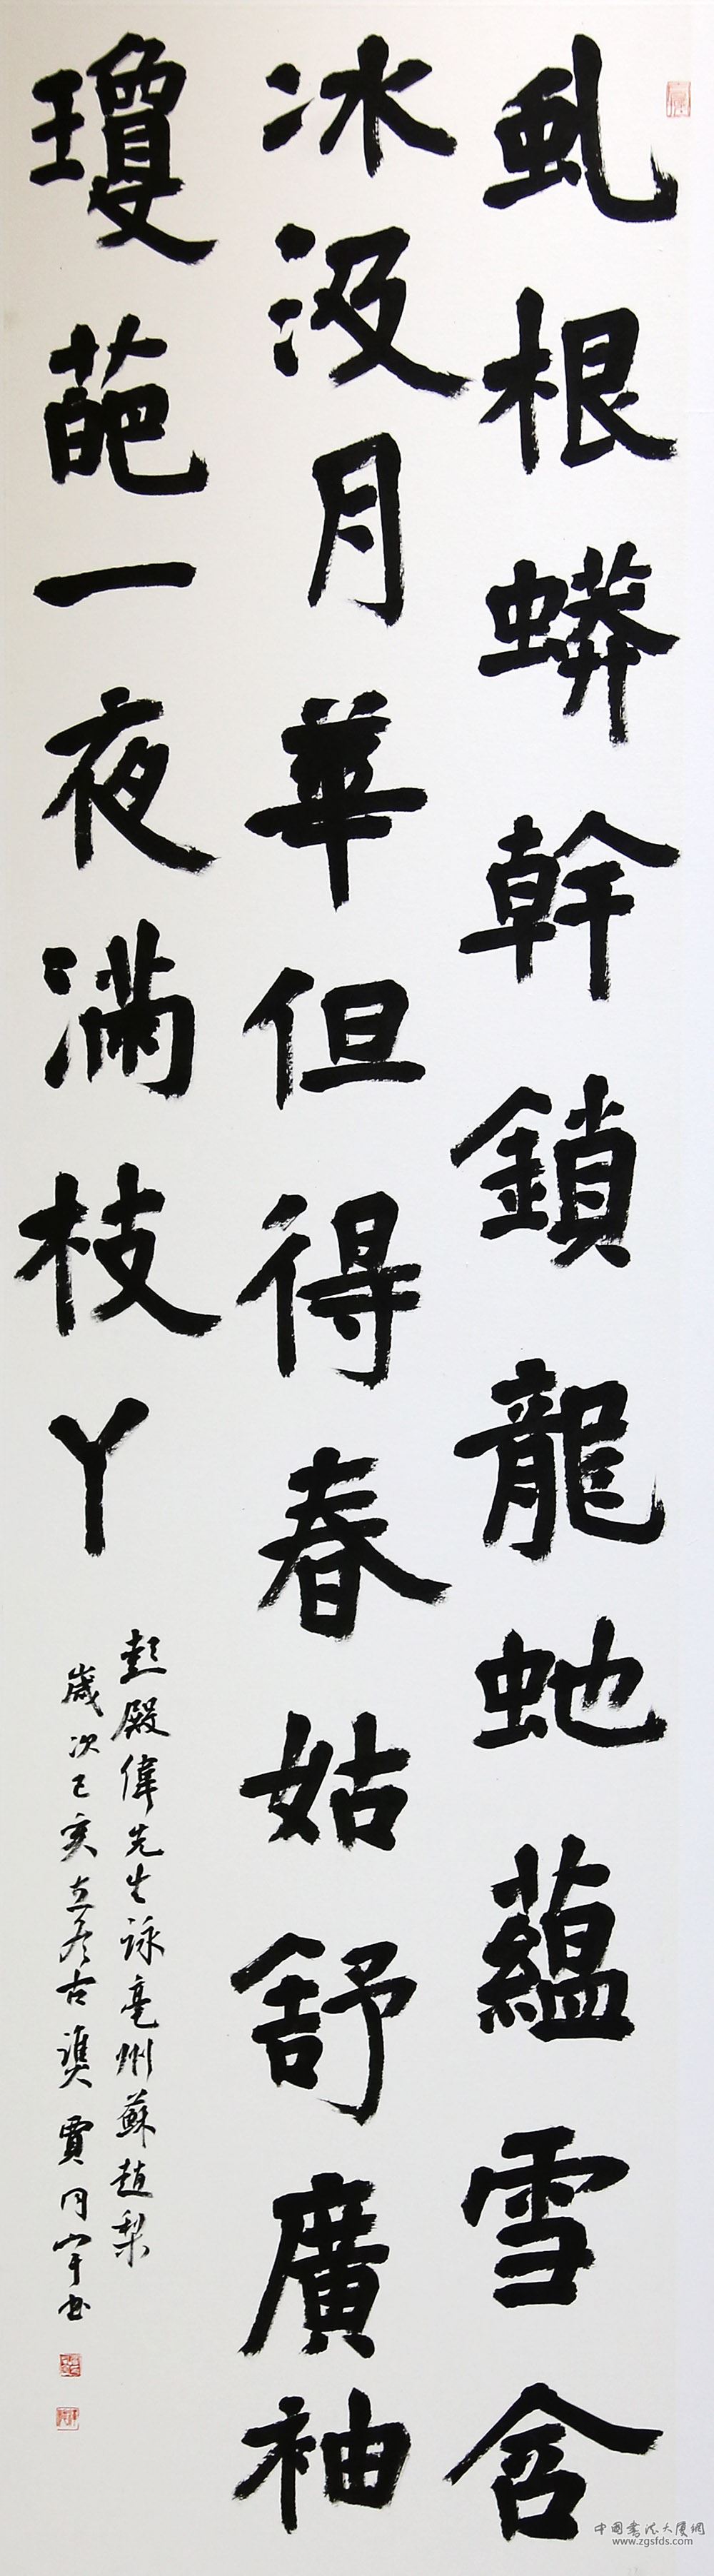 虬根蟒幹鎖龍虵蘊雪含
冰汲月華但得春姑舒廣袖
瓊葩一夜滿枝丫
彭殿偉先生詠亳州蘇趙梨
歲次己亥立冬古譙賈同宇书
中國書法大廈網
www.zgsfds.com